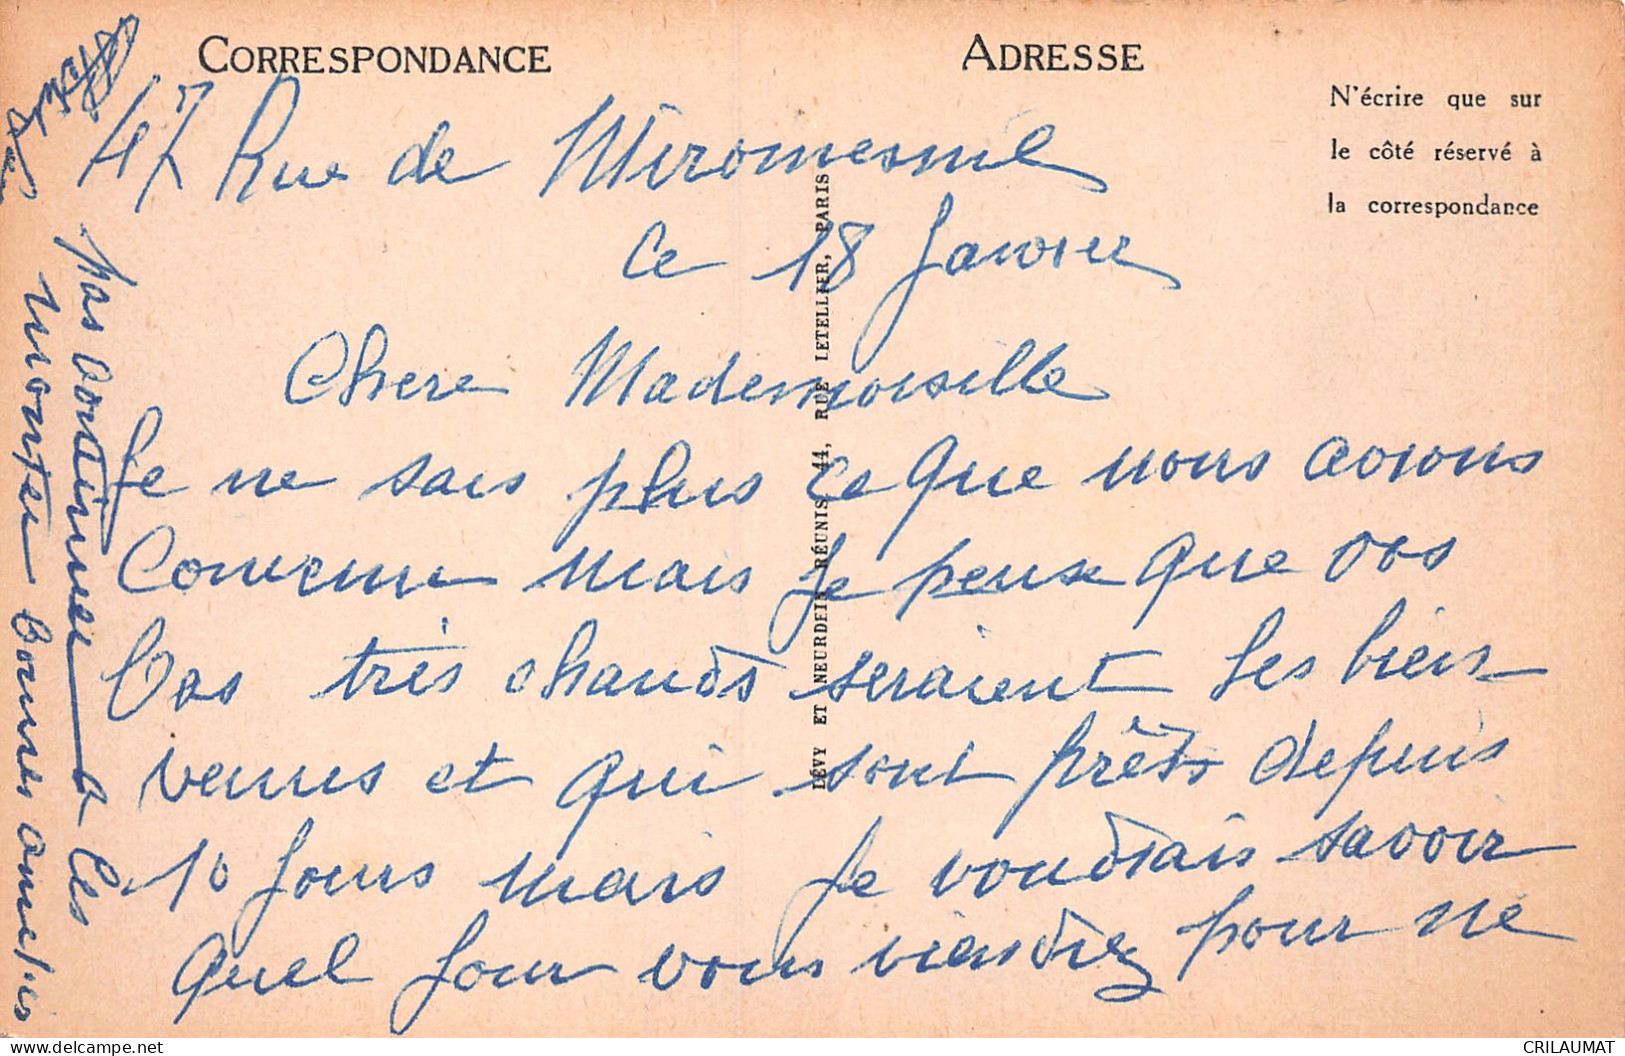 CORRESPONDANCE
ADRESSE
N'écrire que sur
le côté réservé à
la correspondance
47 Rue de Miromesnil
Ce 18 Janvier
Chere Mademoiselle
Je ne sais plus ce que nous avions
Convenu mais Je pense que vos
bas très chauds seraient les bien
venus et qui sont prêts depuis
10 Jours mais Je voudrais savoir
quel Jour vous viendrez pour ne
pas continuer à les
monter bonnes amitiés
LÉVY ET NEURDEIN RÉUNIS, 44, RUE LETELLIER, PARIS
CRILAUMAT